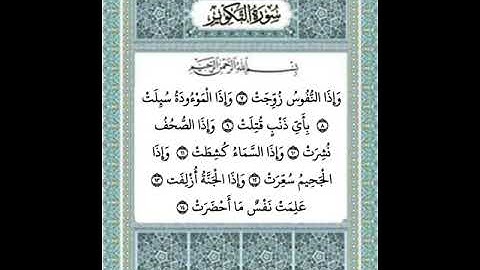 سُورَةُ التَّكْوِيرِ
بِسْمِ اللَّهِ الرَّحْمَٰنِ الرَّحِيمِ
وَإِذَا النُّفُوسُ زُوِّجَتْ ٧ وَإِذَا الْمَوْءُودَةُ سُئِلَتْ
٨ بِأَيِّ ذَنْبٍ قُتِلَتْ ٩ وَإِذَا الصُّحُفُ
نُشِرَتْ ١٠ وَإِذَا السَّمَاءُ كُشِطَتْ ١١ وَإِذَا
الْجَحِيمُ سُعِّرَتْ ١٢ وَإِذَا الْجَنَّةُ أُزْلِفَتْ ١٣
عَلِمَتْ نَفْسٌ مَا أَحْضَرَتْ ١٤